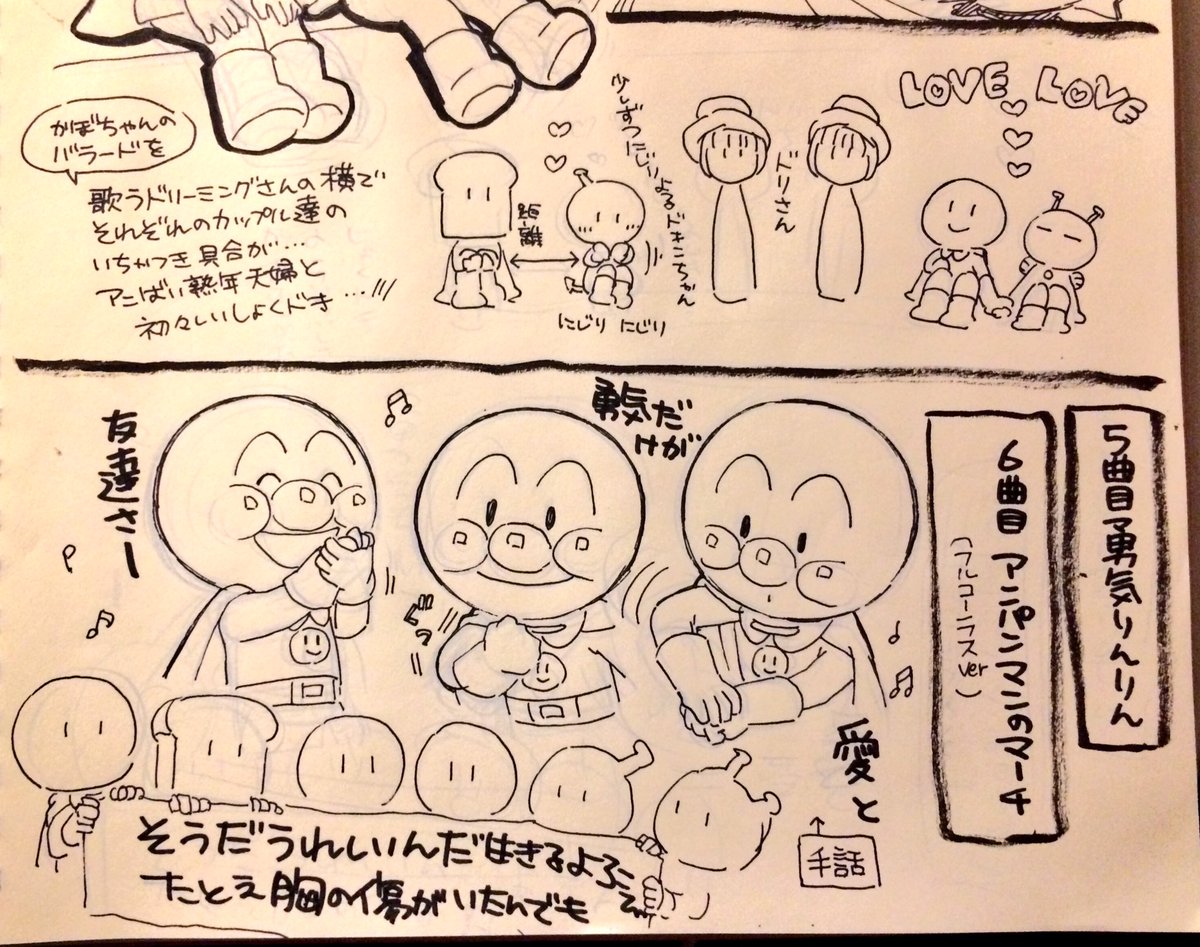 かぼちゃんの
バラードを
歌うドリーミングさんの横で
それぞれのカップル達の
いちゃつき具合が…
アンばい熟年夫婦と
初々しいしょくドキ…///
距離
にじり にじり
少しずつにじりよるドキンちゃん
ドリさん
LOVE LOVE
5曲目 勇気りんりん
6曲目 アンパンマンのマーチ
(フルコーラスver)
愛と
手話
勇気だ
けが
ぎゅっ
友達さー
そうだうれしいんだ生きるよろこび
たとえ胸の傷がいたんでも